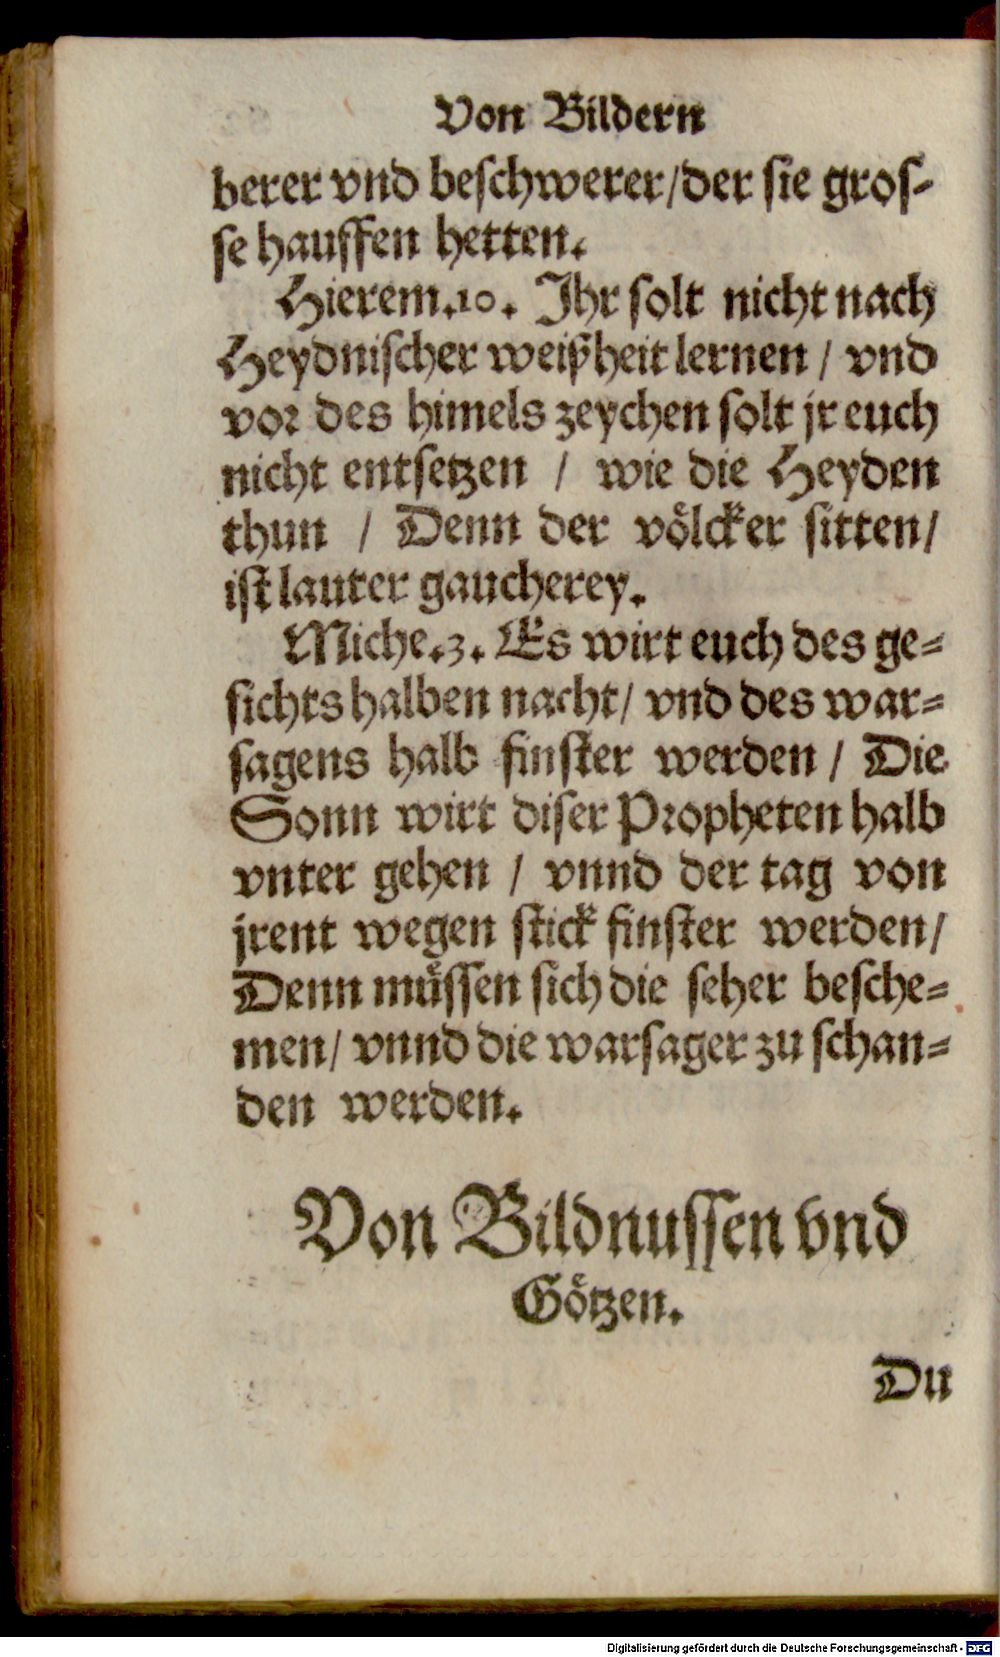 Von Bildern
berer vnd beſchwerer/der ſie groſ-
ſe hauffen hetten.
Hierem.10. Jhr ſolt nicht nach
Heydniſcher weiſzheit lernen / vnd
voꝛ des himels zeychen ſolt jr euch
nicht entſetzen / wie die Heyden
thun / Denn der voͤlcker ſitten/
iſt lauter gaucherey.
Miche.3. Es wirt euch des ge-
ſichts halben nacht/ vnd des war-
ſagens halb finſter werden / Die
Sonn wirt diſer Pꝛopheten halb
vnter gehen / vnnd der tag von
jrent wegen ſtick finſter werden/
Denn muͤſſen ſich die ſeher beſche-
men/ vnnd die warſager zu ſchan-
den werden.
Von Bildnuſſen vnd
Goͤtzen.
Du
Digitalisierung gefördert durch die Deutsche Forschungsgemeinschaft - DFG